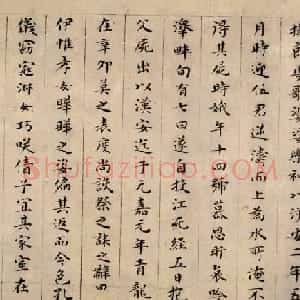 歌婆娑樂神以漢安二年
月時迎伍君逆濤而上為水所淹不
得其屍時娥年十四號慕思盱哀吟
澤畔旬有七日遂自投江死經五日抱
父屍出以漢安迄于元嘉元年青龍
在辛卯莫之表度尚設祭之誄之辭曰
伊惟孝女曄曄之姿偏其返而令色孔
儀窈窕淑女巧笑倩子宜其家室在